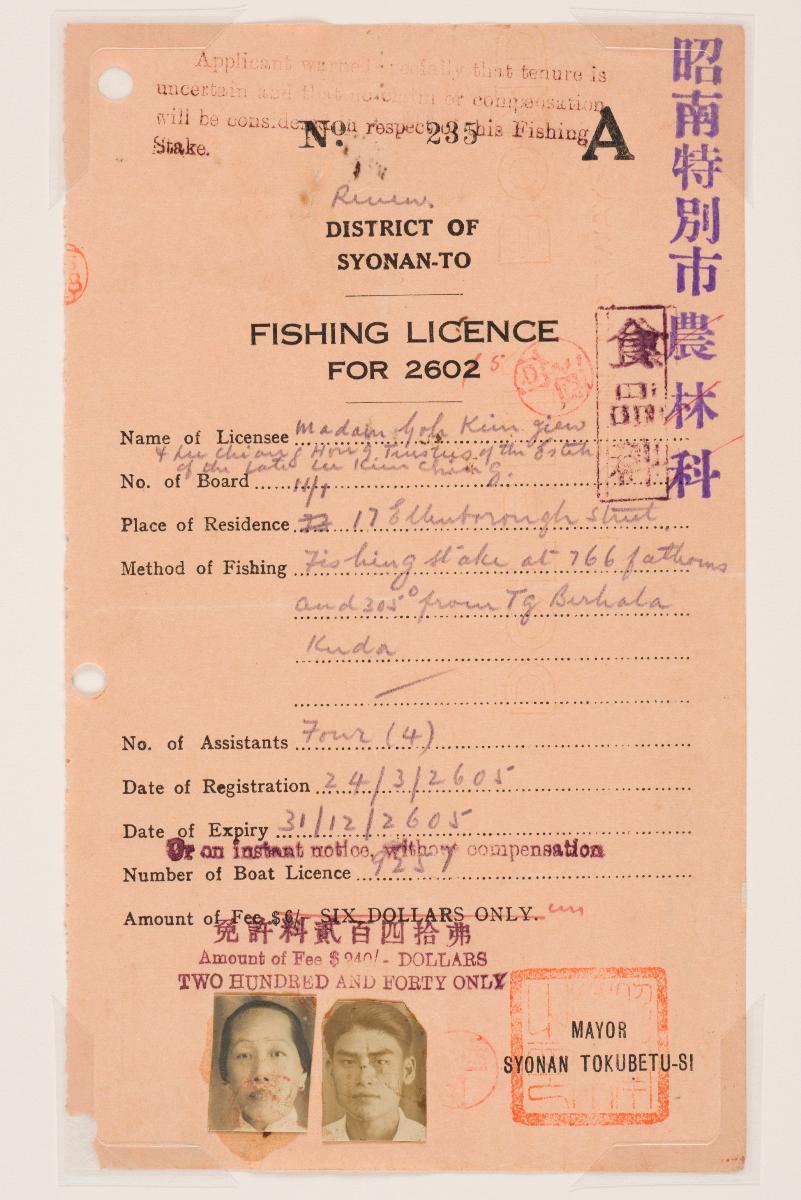 Applicant warned specially that tenure is
uncertain and that no claim or compensation
will be considered in respect of this Fishing
Stake.
No. 235 A
Renew.
DISTRICT OF
SYONAN-TO
FISHING LICENCE
FOR 2602
5
昭南特別市農林科
食品科
Name of Licensee Madam Goh Kim
& Lee Chiang Hong Trustees of the Estate
of the late Lee Kim Chiang.
No. of Board
Place of Residence 17 Ellenborough Street
Method of Fishing Fishing stake at 766 fathoms
and 305° from Tg Birhala
Kuda
No. of Assistants Four (4)
Date of Registration 24/3/2605
Date of Expiry 31/12/2605
Or on instant notice, without compensation
Number of Boat Licence 9257
Amount of Fee $6/- SIX DOLLARS ONLY.
免許料貳百四拾弗
Amount of Fee $240/- DOLLARS
TWO HUNDRED AND FORTY ONLY
MAYOR
SYONAN TOKUBETU-SI